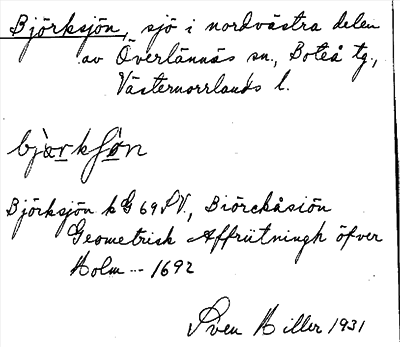 Björksjön, sjö i nordvästra delen
av Överlännäs sn., Boteå tg.,
Västernorrlands l.
Björksjön k G 69 SV., Biörckåsiön
Geometrisk Affriitningh öfver
Holm --- 1692
Sven Hiller 1931